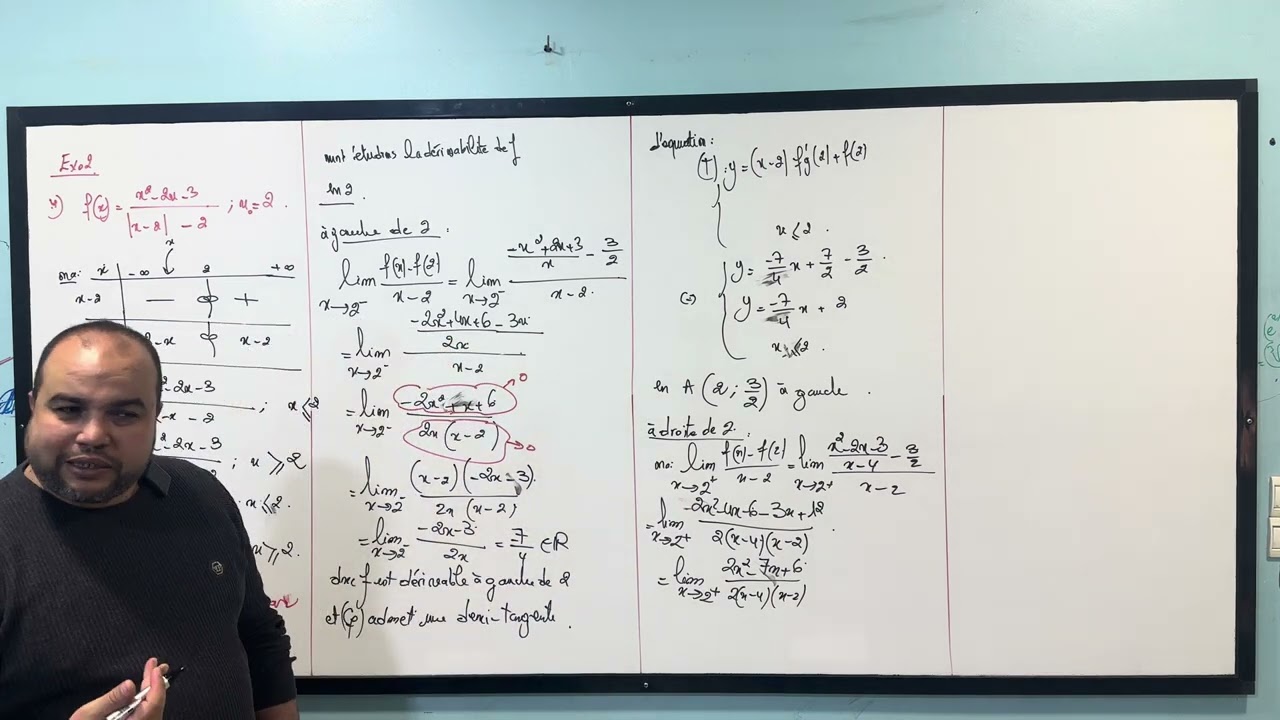 Exo2
f(x) = (x²-2x-3)/(|x-2| - 2) ; x₀ = 2.
x
ona: x | -∞ 2 +∞
x-2 | — 0 +
-x 0 x-2
-2x-3
-x-2 ; x ⩽ 2
²-2x-3 ; x ⩾ 2
x ⩽ 2.
x ⩾ 2.
la dérivabilité de f
en 2
à gauche de 2 :
lim x→2⁻ (f(x)-f(2))/(x-2) = lim x→2⁻ ((-x²+2x+3)/x - 3/2)/(x-2).
= lim x→2⁻ ((-2x²+4x+6-3x)/2x)/(x-2)
= lim x→2⁻ (-2x²+x+6)/(2x(x-2)) →0 →0
= lim x→2⁻ ((x-2)(-2x-3))/(2x(x-2))
= lim x→2⁻ (-2x-3)/2x = 7/4 ∈ℝ
donc f est dérivable à gauche de 2
et (Cf) admet une demi-tangente.
d'equation:
(T): y = (x-2) f'g(2) + f(2)
x ⩽ 2.
y = -7/4 x + 7/2 - 3/2.
(=) y = -7/4 x + 2
x ⩽ 2.
en A (2 ; 3/2) à gauche.
à droite de 2:
ona: lim x→2⁺ (f(x)-f(2))/(x-2) = lim x→2⁺ ((x²-2x-3)/(x-4) - 3/2)/(x-2)
= lim x→2⁺ (-2x²-4x-6-3x+12)/(2(x-4)(x-2)).
= lim x→2⁺ (2x²-7x+6)/(2(x-4)(x-2))